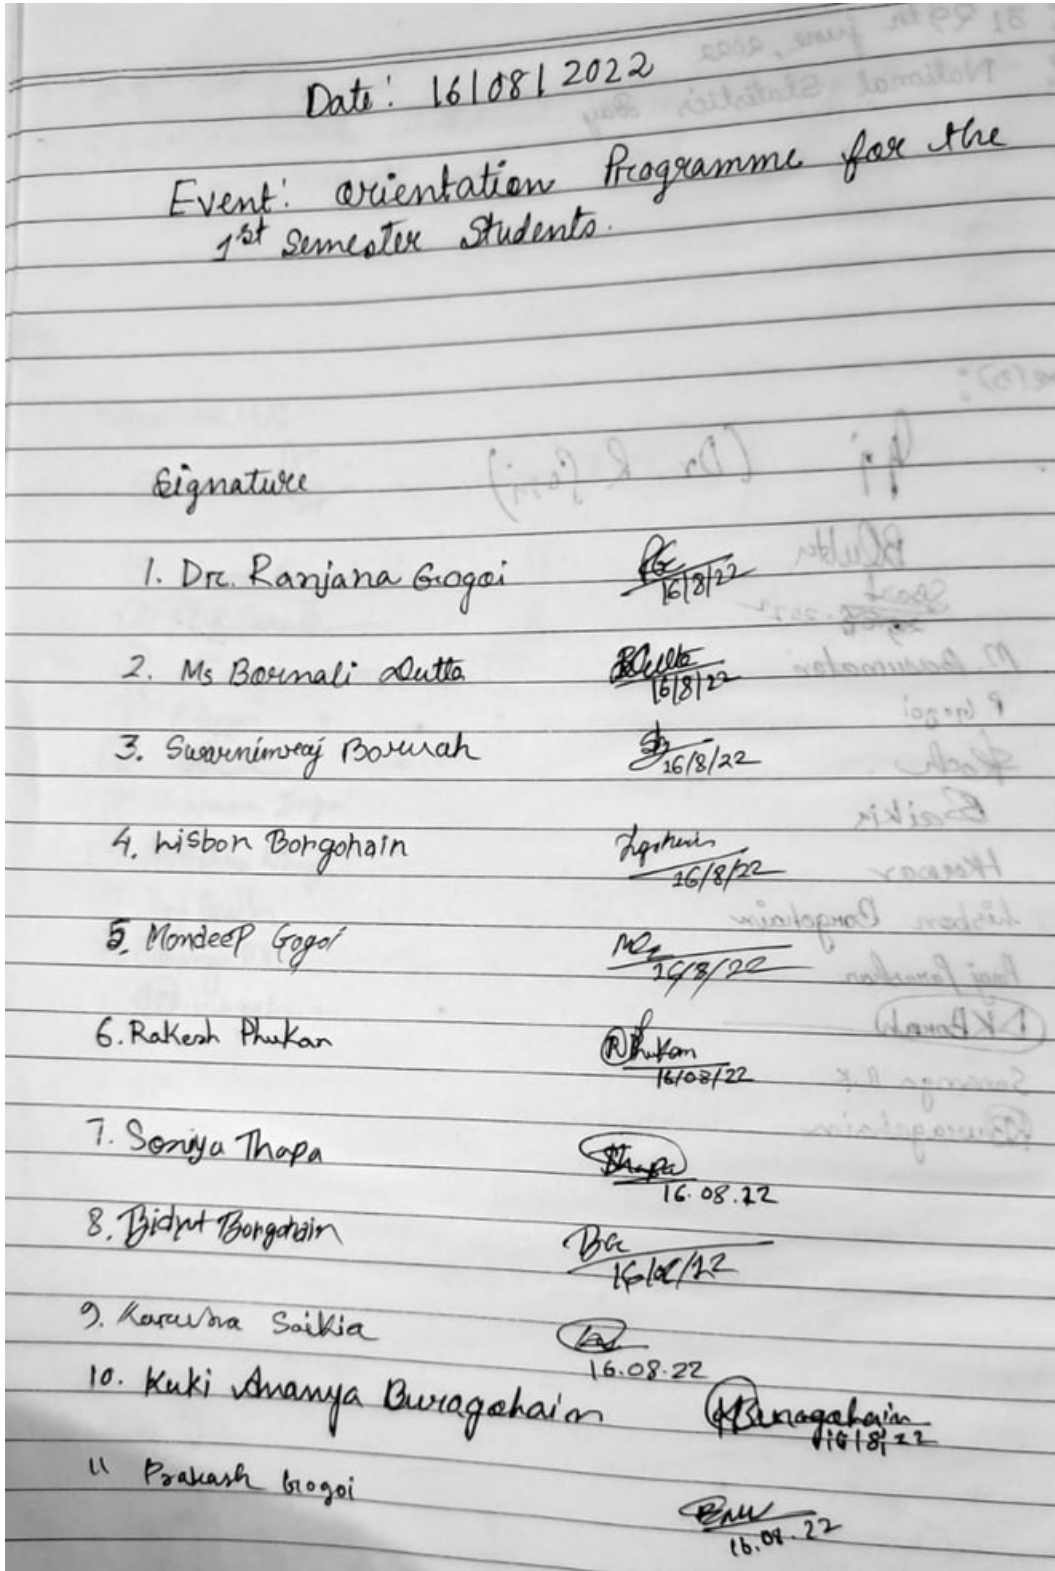 Date: 16/08/2022
Event: Orientation Programme for the
1st Semester Students.
Signature
1. Dr. Ranjana Gogoi
16/8/22
2. Ms Bornali Dutta BDutta
16/8/22
3. Swarnimraj Boruah
16/8/22
4. Lisbon Borgohain
16/8/22
5. Mondeep Gogoi
16/8/22
6. Rakesh Phukan RPhukan
16/08/22
7. Soniya Thapa SThapa
16.08.22
8. Bidyut Borgohain
16/08/22
9. Karuna Saikia
16.08.22
10. Kuki Ananya Buragohain KBuragohain
16/8/22
11 Prakash Gogoi
16.08.22